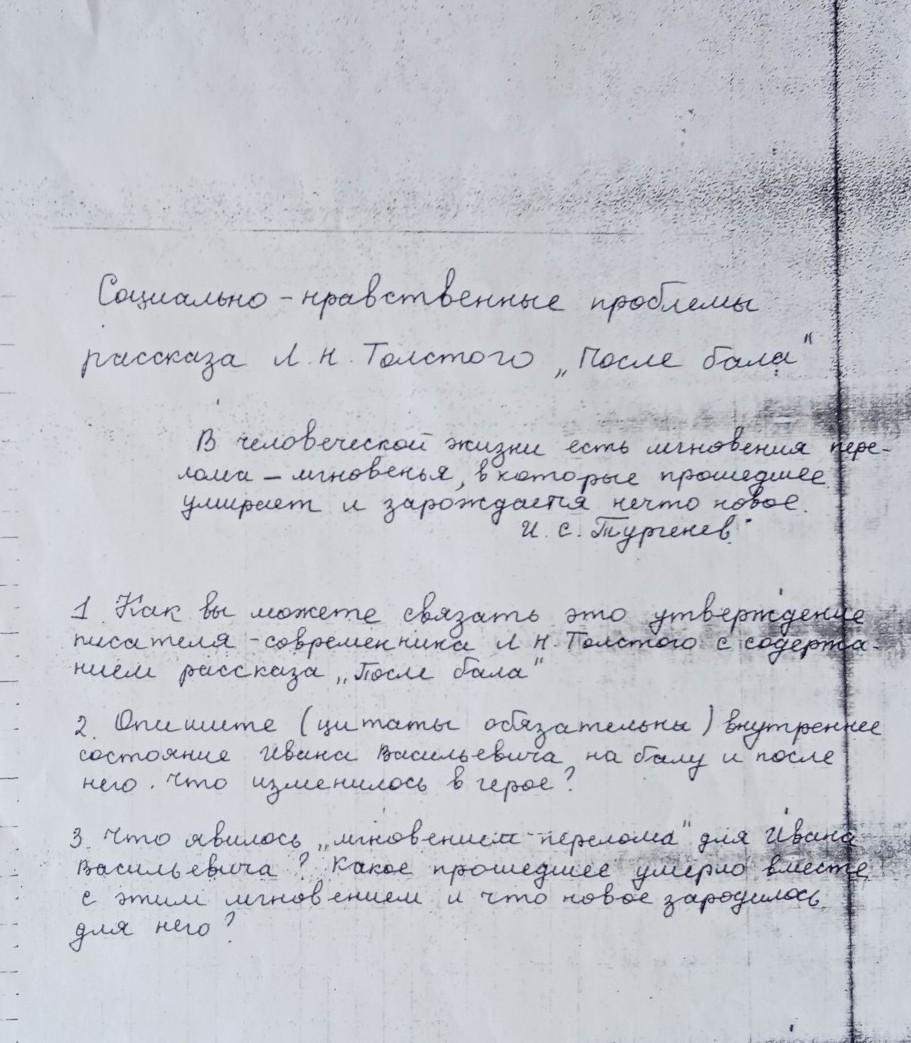 Социально - нравственные проблемы
рассказа Л. Н. Толстого „После бала"
В человеческой жизни есть мгновения пере-
лома – мгновенья, в которые прошедшее
умирает и зарождается нечто новое.
И. С. Тургенев.
1. Как вы можете связать это утверждение
писателя - современника Л. Н. Толстого с содержа-
нием рассказа „После бала"
2. Опишите (цитаты обязательны) внутреннее
состояние Ивана Васильевича на балу и после
него. Что изменилось в герое?
3. Что явилось „мгновением-перелома" для Ивана
Васильевича? Какое прошедшее умерло вместе
с этим мгновением и что новое зародилось
для него?